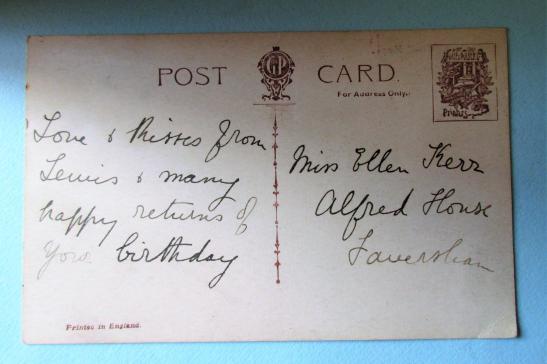 POST CARD.
For Address Only.
Love & Kisses from
Lewis & many
happy returns of
your birthday
Miss Ellen Kerr
Alfred House
Faversham
Printed in England.